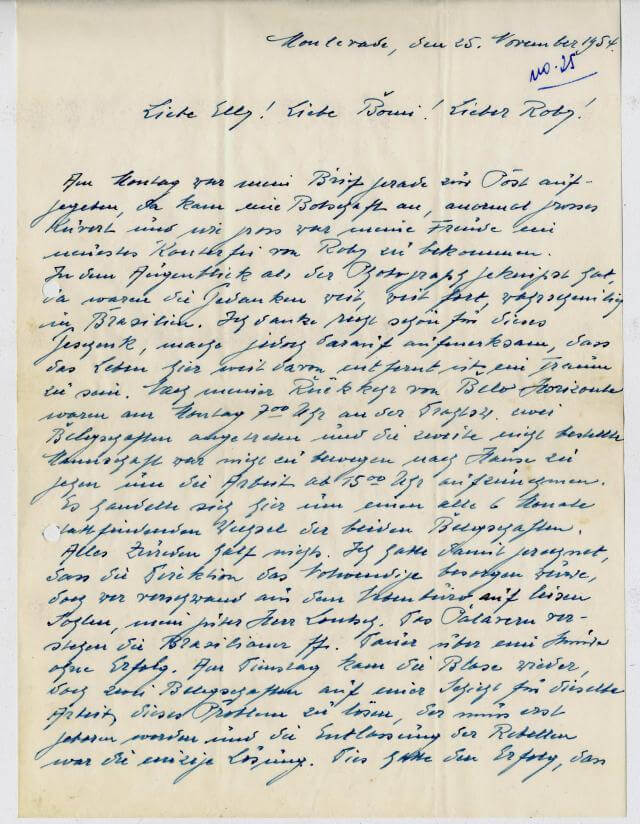 Monlevade, den 25. November 1954.
no. 25
Liebe Elly! Liebe Bomi! Lieber Roby!
Am Montag war mein Brief gerade zur Post auf-
gegeben, da kam eine Botschaft an, anormal grosses
Kuvert und wie gross war meine Freude ein
neustes Konterfei von Roby zu bekommen.
In dem Augenblick als der Photograph geknipst hat,
da waren die Gedanken weit, weit fort, wahrscheinlich
in Brasilien. Ich danke recht schön für dieses
Geschenk, mache jedoch darauf aufmerksam, dass
das Leben hier weit davon entfernt ist ein Traum
zu sein. Nach meiner Rückkehr von Belo Horizonte
waren am Montag 7⁰⁰ Uhr an der zwei
Belegschaften angetreten und die zweite nicht bestellte
Mannschaft war nicht zu bewegen nach Hause zu
gehen um die Arbeit ab 15⁰⁰ Uhr aufzunehmen.
Es handelte sich hier um einen alle 6 Monate
stattfindenden Wechsel der beiden Belegschaften.
Alles Zureden half nichts. Ich hatte damit gerechnet,
dass die Direktion das Notwendige besorgen würde,
doch wer verschwand aus dem auf leisen
Sohlen, mein guter Herr Loutsch. Das Palavern ver-
stehen die Brasilianer ff. Dauer über eine Stunde
ohne Erfolg. Am Dienstag kam die Blase wieder,
doch zwei Belegschaften auf einer Schicht für dieselbe
Arbeit, dieses Problem zu lösen, der muss erst
geboren werden und die Entlassung der Rebellen
war die einzige Lösung. Dies hatte den Erfolg, dass